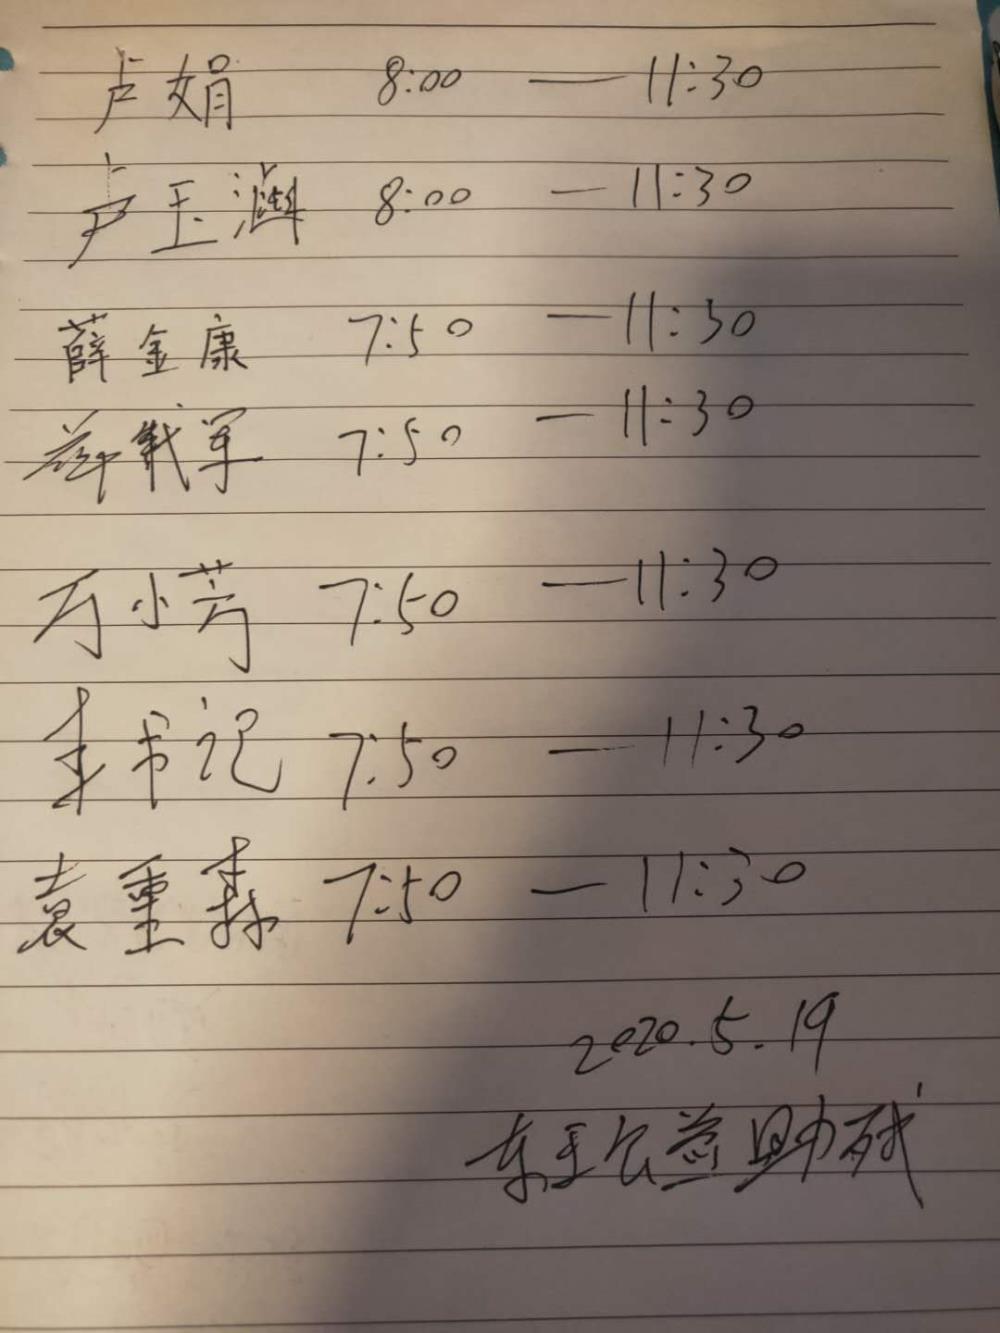 卢娟 8:00 — 11:30
卢玉涵 8:00 — 11:30
薛金康 7:50 — 11:30
军 7:50 — 11:30
万小芳 7:50 — 11:30
书记 7:50 — 11:30
袁重森 7:50 — 11:30
2020.5.19
公益助残